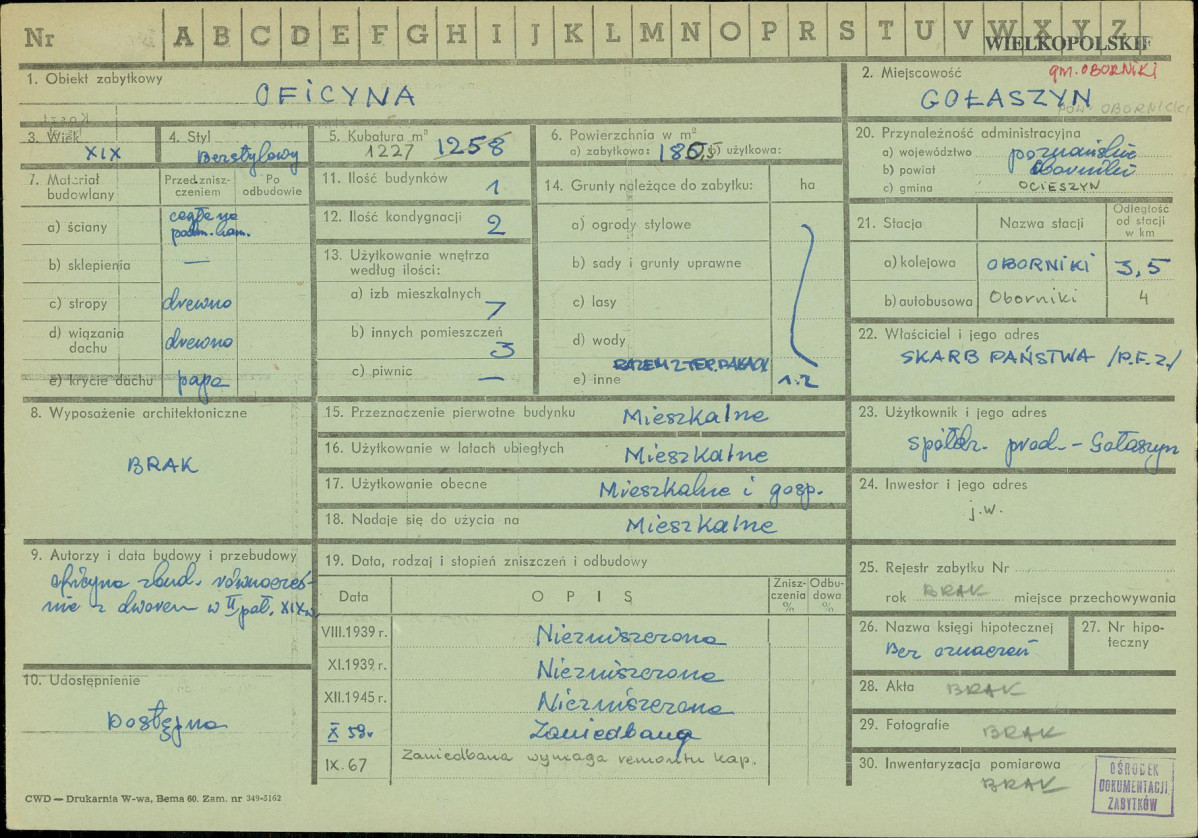 Nr A B C D E F G H I J K L M N O P R S T U V W X Y Z
WIELKOPOLSKIE
1. Obiekt zabytkowy
OFICYNA
2. Miejscowość
gm. OBORNIKI
GOŁASZYN
pow. OBORNICKI
3. Wiek
XIX
4. Styl
Bezstylowy
5. Kubatura m³
1227 1258
6. Powierzchnia w m²
a) zabytkowa: b) użytkowa:
20. Przynależność administracyjna
a) województwo poznańskie
b) powiat Oborniki
c) gmina OCIESZYN
7. Materiał budowlany
Przed znisz-
czeniem
Po
odbudowie
a) ściany
cegła na
podm. kam.
b) sklepienia —
c) stropy drewno
d) wiązania
dachu
drewno
e) krycie dachu papa
11. Ilość budynków 1
12. Ilość kondygnacji 2
13. Użytkowanie wnętrza
według ilości:
a) izb mieszkalnych 7
b) innych pomieszczeń 3
c) piwnic —
14. Grunty należące do zabytku: ha
a) ogrody stylowe
b) sady i grunty uprawne
c) lasy
d) wody
RAZEM Z TER.
e) inne 1.2
21. Stacja Nazwa stacji
Odległość
od stacji
w km
a) kolejowa OBORNIKI 3,5
b) autobusowa Oborniki 4
22. Właściciel i jego adres
SKARB PAŃSTWA /P.F.Z./
8. Wyposażenie architektoniczne
BRAK
15. Przeznaczenie pierwotne budynku Mieszkalne
16. Użytkowanie w latach ubiegłych Mieszkalne
17. Użytkowanie obecne Mieszkalne i gosp.
18. Nadaje się do użycia na Mieszkalne
23. Użytkownik i jego adres
spółdz. prod. - Gołaszyn
24. Inwestor i jego adres
j.w.
9. Autorzy i data budowy i przebudowy
oficyna zbud. równocześ-
nie z dworem w II poł. XIX w.
10. Udostępnienie
Dostępna
19. Data, rodzaj i stopień zniszczeń i odbudowy
Data OPIS
Znisz-
czenia
%
Odbu-
dowa
%
VIII.1939 r. Niezniszczona
XI.1939 r. Niezniszczona
XII.1945 r. Niezniszczona
X 59r Zaniedbana
IX.67 Zaniedbana wymaga remontu kap.
25. Rejestr zabytku Nr
rok BRAK miejsce przechowywania
26. Nazwa księgi hipotecznej
Bez oznaczeń
27. Nr hipo-
teczny
28. Akta BRAK
29. Fotografie BRAK
30. Inwentaryzacja pomiarowa
BRAK
OŚRODEK
DOKUMENTACJI
ZABYTKÓW
CWD — Drukarnia W-wa, Bema 60. Zam. nr 349-5162